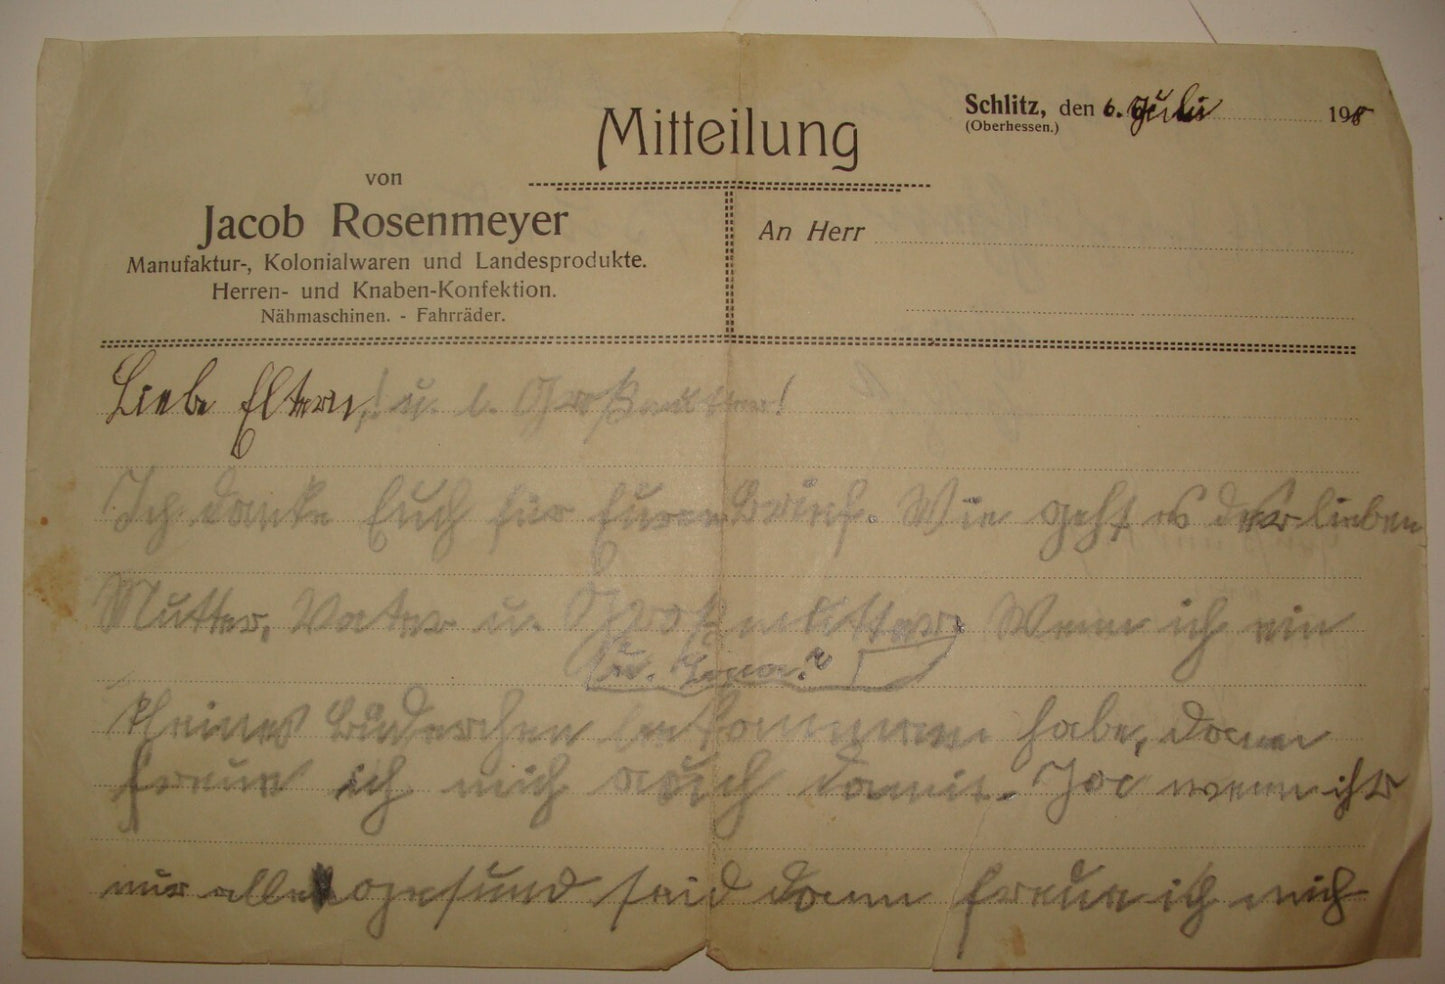 Mitteilung
Schlitz, den 6. Juli 19
(Oberhessen.)
von
Jacob Rosenmeyer
Manufaktur-, Kolonialwaren und Landesprodukte.
Herren- und Knaben-Konfektion.
Nähmaschinen. - Fahrräder.
An Herr
Liebe Eltern! u. l. Großmutter!
Ich danke Euch für Euren Brief. Wie geht es der lieben
Mutter, Vater u. Großmutter. Wenn ich ein
u.
kleines Brüderchen bekommen habe, dann
freue ich mich auch damit. Ja wenn ihr
nur alle gesund seid dann freue ich mich